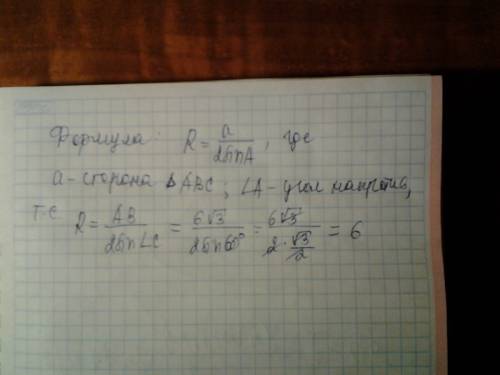 Формула: R = a / 2sinA, где
a - сторона ΔABC; ∠A - угол напротив,
т.е. R = AB / 2sin∠C = 6√3 / 2sin60° = 6√3 / 2·√3/2 = 6